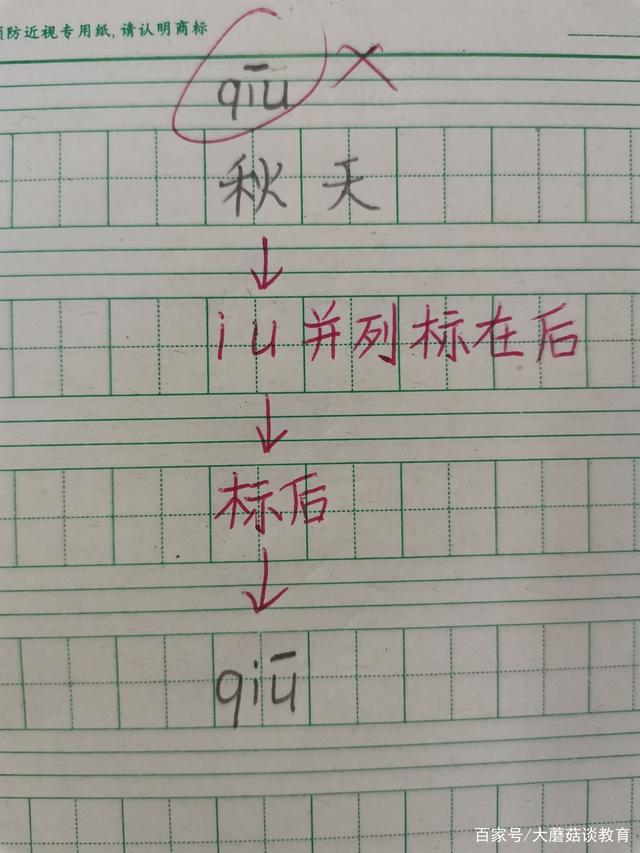 预防近视专用纸,请认明商标
qīu ×
秋天
↓
iu并列标在后
↓
标后
↓
qiū
百家号/大蘑菇谈教育